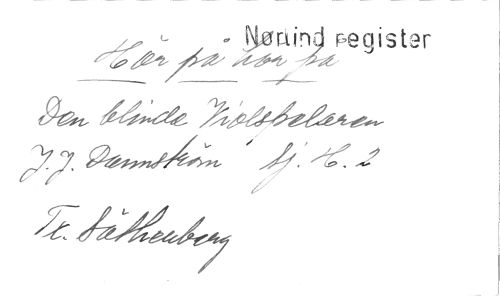 Nørlind register
Hör på hör på
Den blinda Violspelaren
J. J. Dannström Sj. H. 2
Tr. Säthenberg